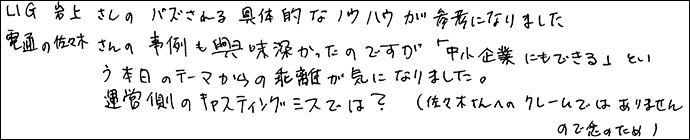 LIG 岩上さんの バズされる具体的なノウハウが参考になりました
電通の佐々木さんの事例も興味深かったのですが「中小企業にもできる」とい
う本日のテーマからの乖離が気になりました。
運営側のキャスティングミスでは？ (佐々木さんへのクレームではありません
ので念のため)